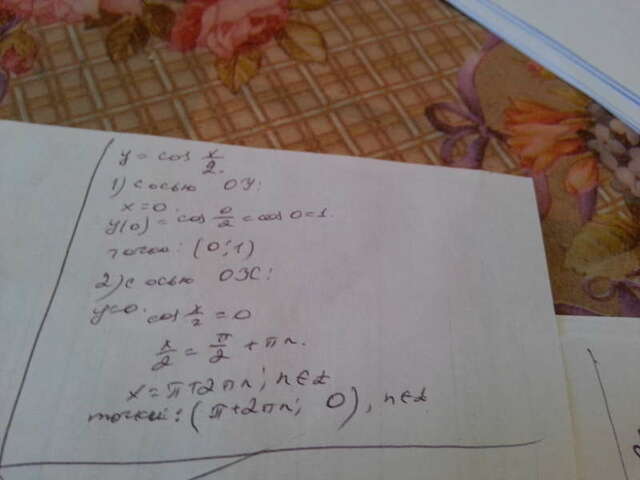 y = cos x/2.
1) с осью ОУ:
x = 0.
y(0) = cos 0/2 = cos 0 = 1.
точка: (0; 1)
2) с осью ОХ:
y=0. cos x/2 = 0
x/2 = π/2 + πn.
x = π + 2πn; n∈Z
точки: (π + 2πn; 0), n∈Z